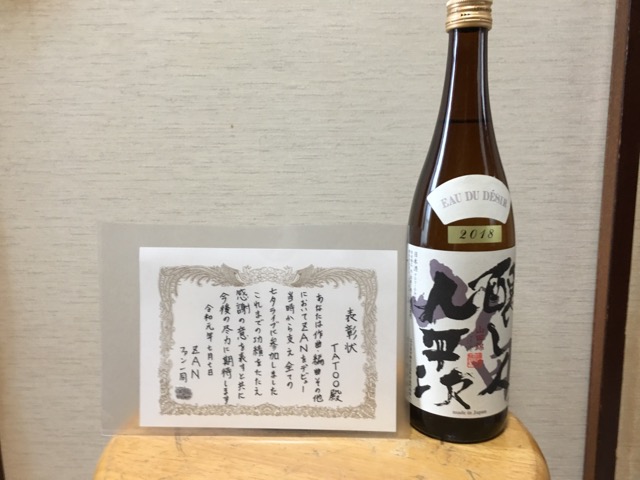 表彰状
TATOO殿
あなたは作曲 編曲その他
においてZANをデビュー
当時から支え 全ての
七夕ライブに参加しました
これまでの功績をたたえ
感謝の意を表すと共に
今後の尽力に期待します
令和元年七月七日
ZAN
ファン一同
EAU DU DÉSIR
2018
醸し人
九平次
made in Japan